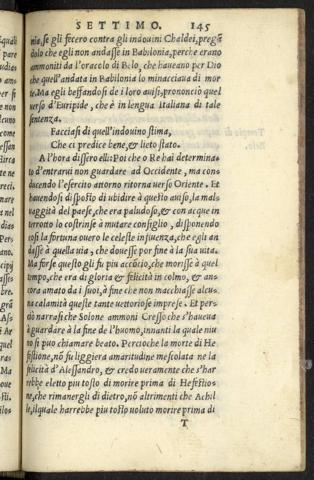 SETTIMO. 145
nia, se gli fecero contra gli indouini Chaldei, pregã
dolo che egli non andasse in Babilonia, perche erano
ammoniti da l'oracolo di Belo, che haueano per Dio
che quell'andata in Babilonia lo minacciaua di mor
te. Ma egli beffandosi de i loro auisi, prononciò quel
verso d'Euripide, che è in lengua Italiana di tale
sentenza.
Facciasi di quell'indouino stima,
Che ci predice bene, & lieto stato.
A l'hora dissero elli: Poi che o Re hai determina
to d'entrarui non guardare ad Occidente, ma con-
ducendo l'esercito attorno ritorna verso Oriente. Et
hauendosi disposto di ubidire a questo auiso, la mal-
uaggità del paese, che era paludoso, & con acque in
terrotto lo costrinse à mutare consiglio, disponendo
cosi la fortuna ouero le celeste influenza, che egli an
dasse à quella uia, che douesse por fine à la sua uita.
Ma forse questo gli fu piu accõcio, che morisse à quel
tempo, che era di gloria & felicità in colmo, & an-
cora amato da i suoi, à fine che non macchiasse alcu-
na calamità queste tante uettoriose imprese. Et per-
ciò narrasi che Solone ammonì Cresso che s'haueua
à guardare à la fine de l'huomo, innanti la quale niu
no si puo chiamare beato. Percioche la morte di He
festione, nõ fu liggiera amaritudine mescolata ne la
felicità d'Alessandro, & credo ueramente che s'har
rebbe eletto piu tosto di morire prima di Hefestio-
ne, che rimanergli di dietro, nõ altrimenti che Achil
le, ilquale harrebbe piu tosto uoluto morire prima di
T